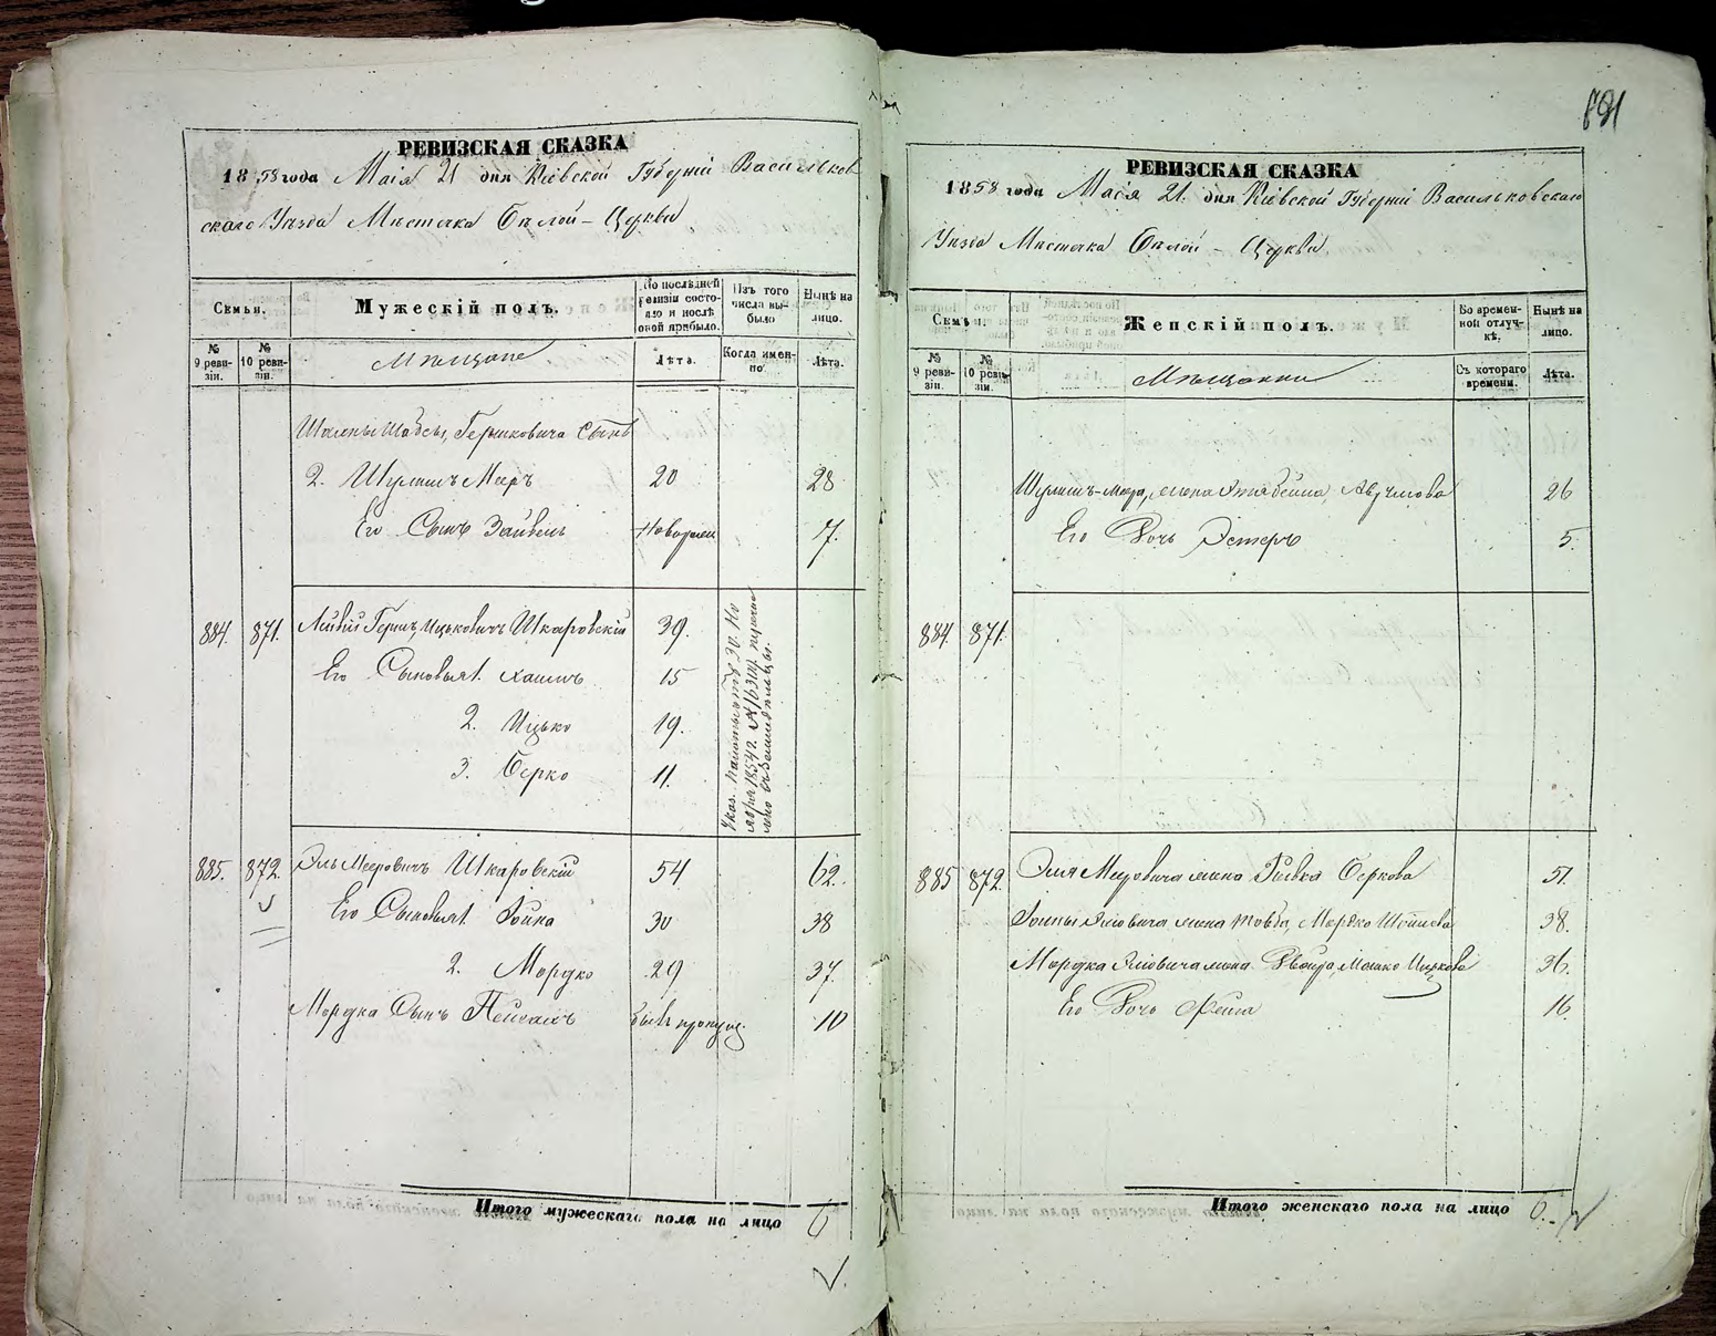 891
РЕВИЗСКАЯ СКАЗКА
1858 года Маія 21 дня Кіевской Губерніи Васильков
скаго Уѣзда Мѣстечка Бѣлой-Церкви
Семьи.
Мужескій полъ.
По послѣдней ревизіи состояло и послѣ оной прибыло.
Изъ того числа выбыло
Нынѣ на лицо.
№ 9 ревизіи.
№ 10 ревизіи.
Мѣщане
Лѣта.
Когда именно.
Лѣта.
Шабсы, Гершковича Сынъ
2. Шулимъ Меръ 20 28
Его Сынъ Зайвель Новорожд 7.
884. 871. Лейвій Гершъ Ицьковичъ Шкаровскій 39.
Его Сыновья 1. Хаимъ 15
2. Ицько 19.
3. Берко 11.
Указ. Палаты отъ 30. Но
ября 1854 г. №
885. 872. Эль Мееровичъ Шкаровскій 54 62.
Его Сыновья 1. Іойна 30 38
2. Мордко 29 37.
Мордка Сынъ Пейсахъ былъ пропущ. 10
Итого мужескаго пола на лицо 6
РЕВИЗСКАЯ СКАЗКА
1858 года Маія 21. дня Кіевской Губерніи Васильковскаго
Уѣзда Мѣстечка Бѣлой-Церкви.
Семьи.
Женскій полъ.
Во временной отлучкѣ.
Нынѣ на лицо.
№ 9 ревизіи.
№ 10 ревизіи.
Мѣщанки
Съ котораго времени.
Лѣта.
Шулимъ-Мера, жена 26
Его Дочь Эстеръ 5.
884. 871.
885 872. Эля Мееровича жена Ривка Беркова 51.
Іойны Эліовича жена Товба, Мордко 38.
Мордка Эліовича жена Двойра, Мошко Ицькова 36.
Его Дочь Фейга 16.
Итого женскаго пола на лицо 6.